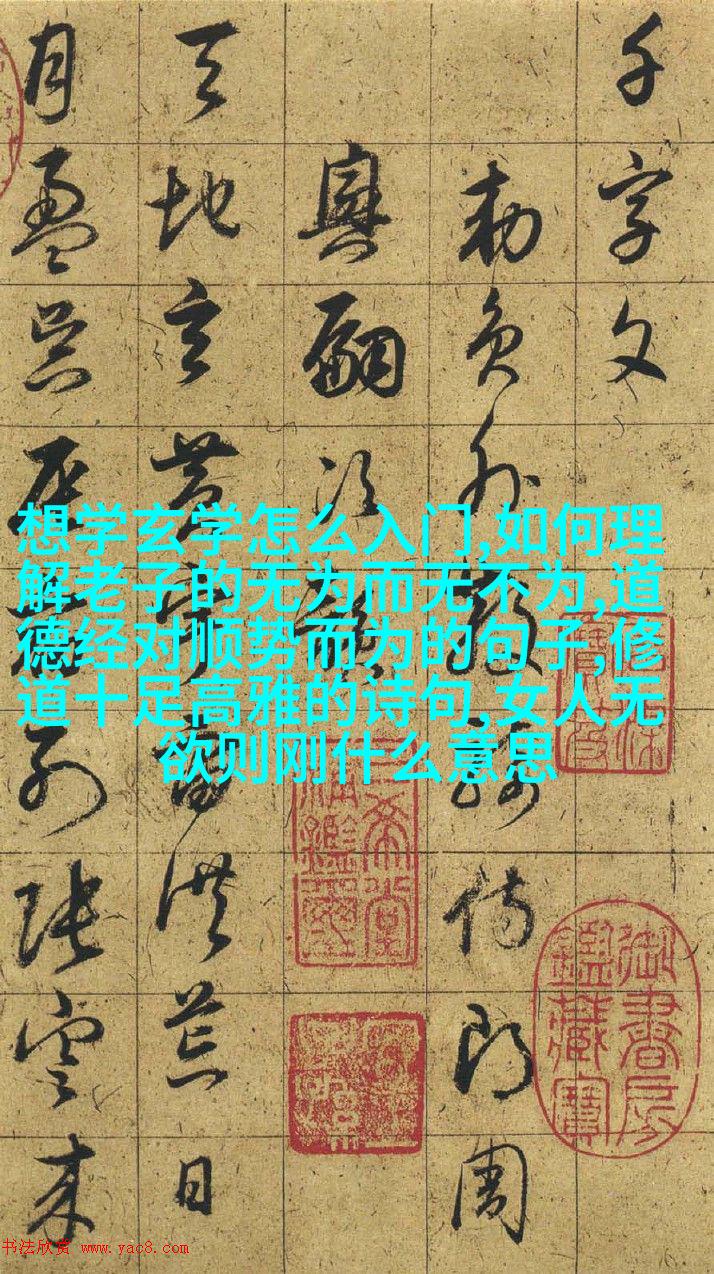 千字文
勅員外散騎侍郎周
興嗣次韻
天地玄黃宇宙洪荒日
月盈昃辰宿列張雲來
想学玄学怎么入门,如何理
解老子的无为而无不为,道
德经对顺势而为的句子,修
道十足高雅的诗句,女人无
欲则刚什么意思
三希堂
精鑑璽
御書房
鑑藏寶
书法欣赏 www.yac8.com